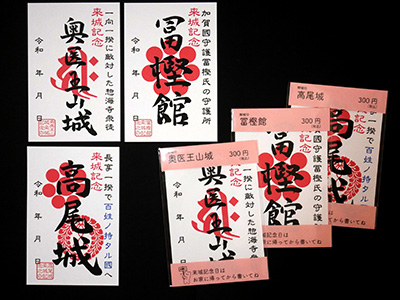 一向一揆に敵対した惣海寺衆徒
来城記念
奥医王山城
令和 年 月 日
加賀國守護冨樫氏の守護所
来城記念
冨樫館
令和 年 月 日
長享一揆で百姓ノ持タル國へ
来城記念
高尾城
令和 年 月 日
奥医王山城
300円
一向一揆に敵対した惣海寺衆
来城記念
奥医王山城
来城記念日は
お家に帰ってから書いてね
冨樫館
300円
冨樫館
来城記念日は
お家に帰ってから書いてね
高尾城
300円
来城記念
高尾城
来城記念日は
お家に帰ってから書いてね